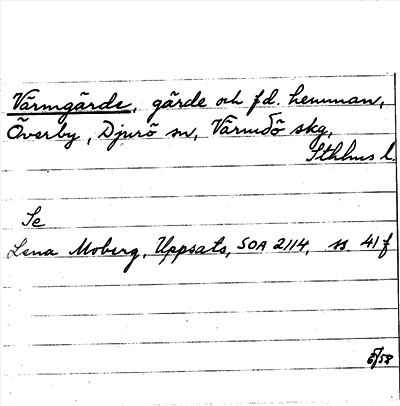 Värmgärde, gärde och fd. hemman,
Överby, Djurö sn, Värmdö skg,
Sthlms l.
Se
Lena Moberg, Uppsats, SOA 2114, ss. 41 f
5/58